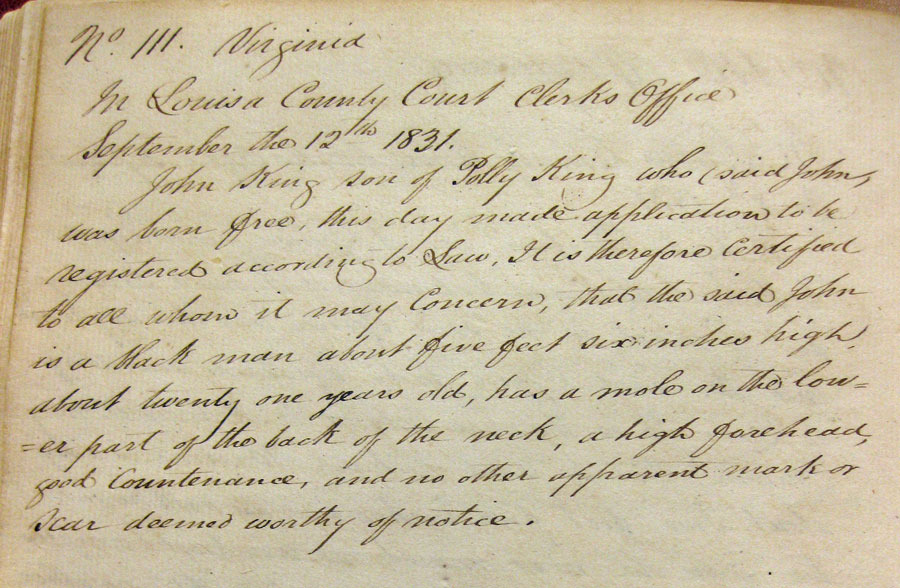 No. 111. Virginia
In Louisa County Court Clerks Office
September the 12th 1831.
John King son of Polly King who (said John,
was born free, this day made application to be
registered according to Law, It is therefore Certified
to all whom it may Concern, that the said John
is a black man about five feet six inches high,
about twenty one years old, has a mole on the low=
=er part of the back of the neck, a high forehead,
good Countenance, and no other apparent mark or
Scar deemed worthy of notice.